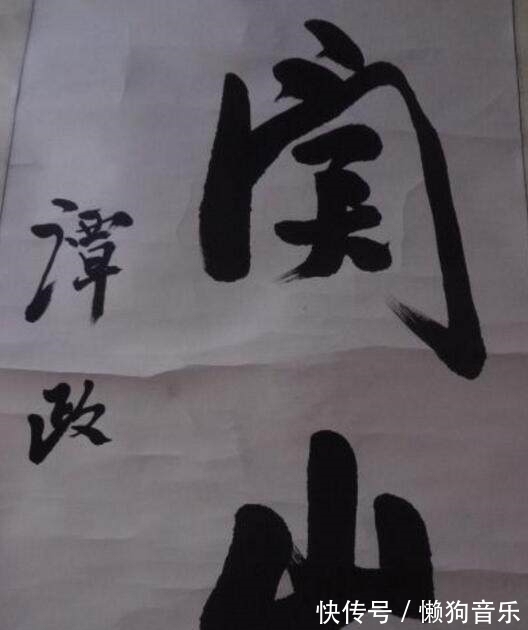 関山
谭政
快传号 / 懒狗音乐